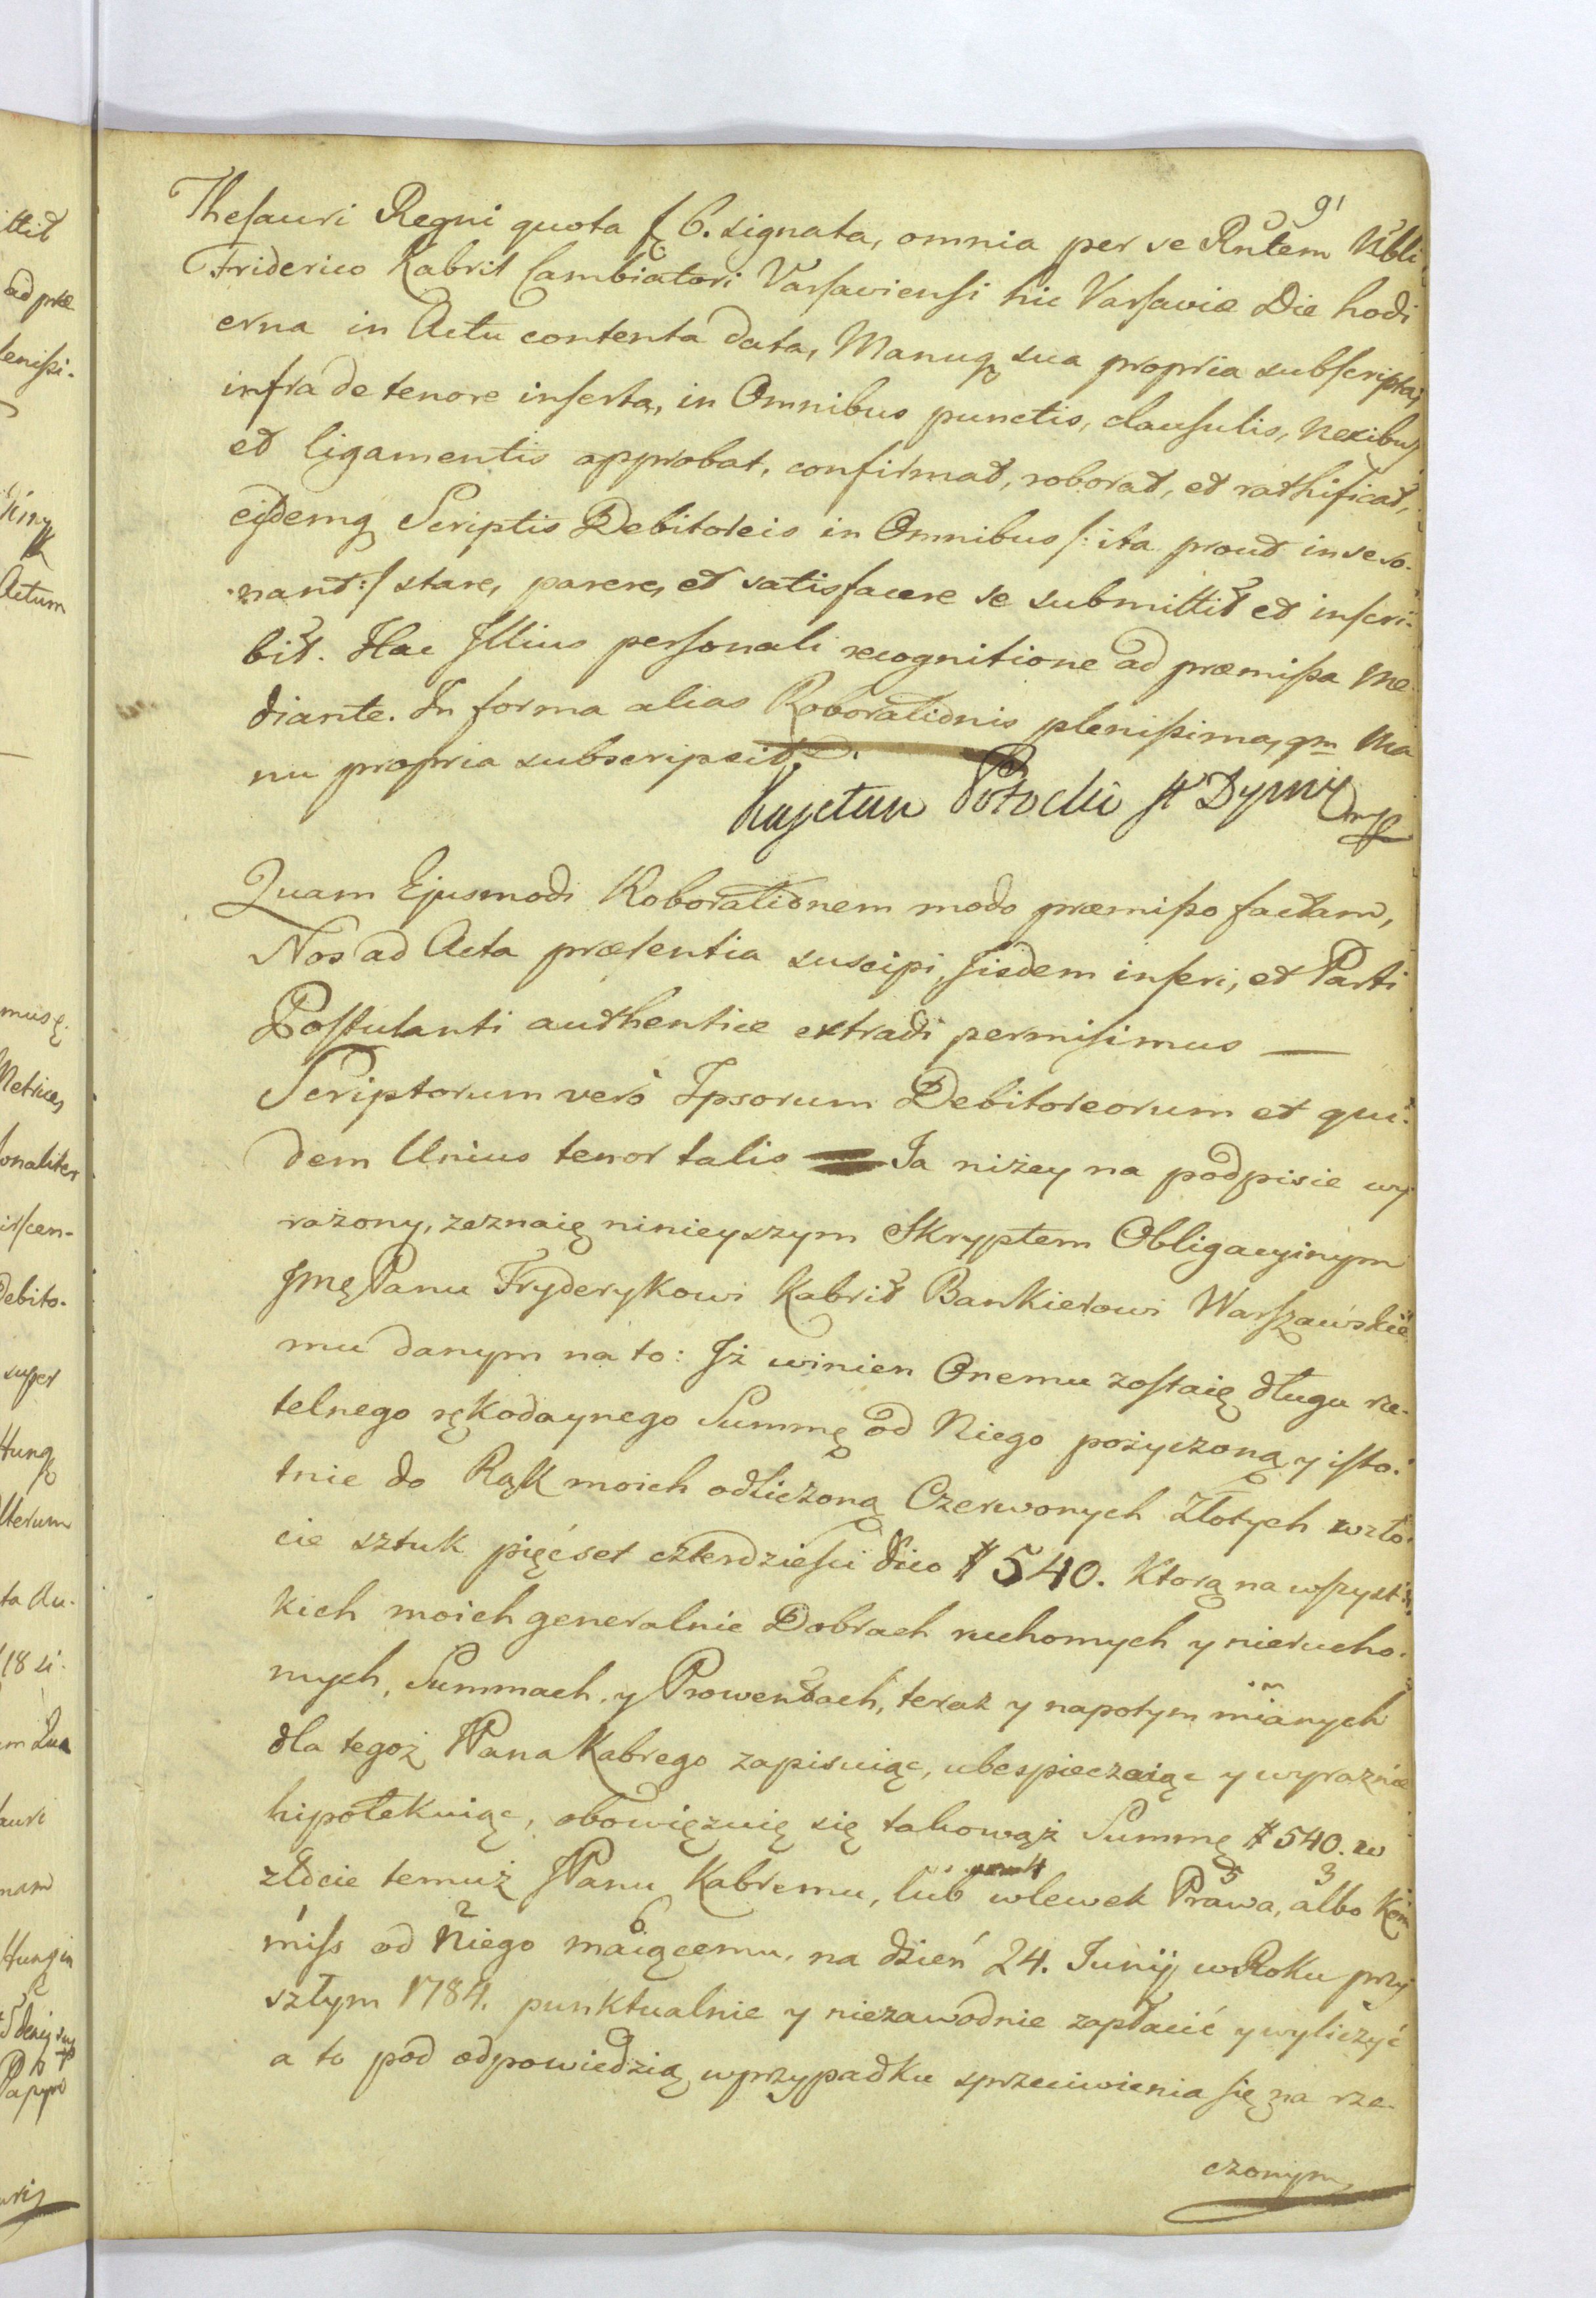 91
Thesauri Regni quota f 6. signata, omnia per se Rntem Nbli
Friderico Kabrit Cambiatori Varsaviensi hic Varsaviæ Die hodi
erna in Actu contenta data, Manuq sua propria subscripta,
infra de tenore inserta, in Omnibus punctis, clausulis, nexibus
et ligamentis approbat, confirmat, roborat, et rathificat,
eisdemq Scriptis Debitoreis in Omnibus /: ita prout in se so.
nant :/ stare, parere, et satisfacere se submittit et inscri.
bit. Hac Illius personali recognitione ad præmissa Me
diante. In forma alias Roborationis plenissima, qm Ma
nu propria subscripsit.
Kajetan Potocki st Dymir mp
Quam Ejusmodi Roborationem modo præmisso factam,
Nos ad Acta præsentia suscipi, Iisdem inseri, et Parti
Postulanti authentice extradi permisimus —
Scriptorum verò Ipsorum Debitoreorum et qui.
dem Unius tenor talis — Ja niżey na podpisie wy
rażony, zeznaię ninieyszym Skryptem Obligacyinym
Jmę Panu Fryderykowi Kabrit Bankierowi Warszawskie
mu danym na to: Iż winien Onemu zostaię długu rze.
telnego rękodaynego Summę od Niego pożyczoną y isto.
tnie do Rąk moich odliczoną Czerwonych Złotych wzło.
cie sztuk pięćset czterdzieści dico # 540. Ktorą na wszyst.
kich moich generalnie Dobrach ruchomych y nierucho.
mych, Summach, y Prowentach, teraz y napotym mianych
dla tegoż JPana Kabrego zapisuiąc, ubespieczaiąc y wyraźnie
hipotekuiąc, obowięzuię się takowąż Summę # 540. w
złocie temuż JPanu Kabremu, lub wlewek Prawa, albo Kom
4 5 3
miss od Niego maiącemu, na dzień 24. Junij w Roku przy
1 2 6
szłym 1784. punktualnie y niezawodnie zapłacić y wyliczyć
a to pod odpowiedzią w przypadku sprzeciwienia się na rze.
czonym